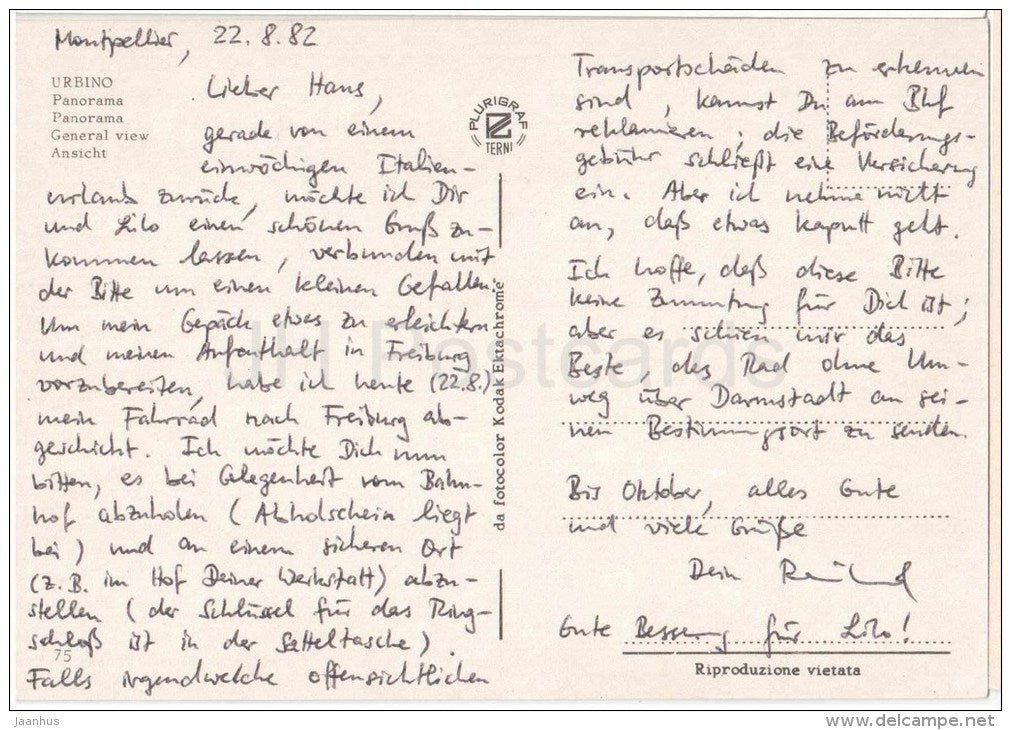 Montpellier, 22.8.82
URBINO
Panorama
Panorama
General view
Ansicht
PLURIGRAF
TERNI
Lieber Hans,
gerade von einem
einwöchigen Italien-
urlaub zurück, möchte ich Dir
und Lilo einen schönen Gruß zu-
kommen lassen, verbunden mit
der Bitte um einen kleinen Gefallen:
Um mein Gepäck etwas zu erleichtern
und meinen Aufenthalt in Freiburg
vorzubereiten, habe ich heute (22.8.)
mein Fahrrad nach Freiburg ab-
geschickt. Ich möchte Dich nun
bitten, es bei Gelegenheit vom Bahn-
hof abzuholen (Abholschein liegt
bei) und an einem sicheren Ort
(z.B. im Hof Deiner Werkstatt) abzu-
stellen (der Schlüssel für das Ring-
schloß ist in der Satteltasche).
75
Falls irgendwelche offensichtlichen
da fotocolor Kodak Ektachrome
Transportschäden zu erkennen
sind, kannst Du am Bhf
reklamieren; die Beförderungs-
gebühr schließt eine Versicherung
ein. Aber ich nehme nicht
an, daß etwas kaputt geht.
Ich hoffe, daß diese Bitte
keine Zumutung für Dich ist;
aber es schien mir das
Beste, das Rad ohne Um-
weg über Darmstadt an sei-
nen Bestimmungsort zu senden.
Bis Oktober, alles Gute
und viele Grüße
Dein
Gute Besserung für Lilo!
Riproduzione vietata
JH Postcards
Jaanhus
www.delcampe.net